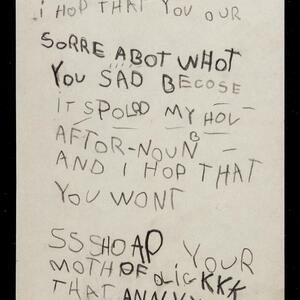 I HOP THAT YOU OUR
SORRE ABOT WHOT
YOU SAD BECOSE
IT SPOLOD MY HOU
AFTOR-NOUN
AND I HOP THAT
YOU WONT
SSSHOAP YOUR
MOTHOF
THAT